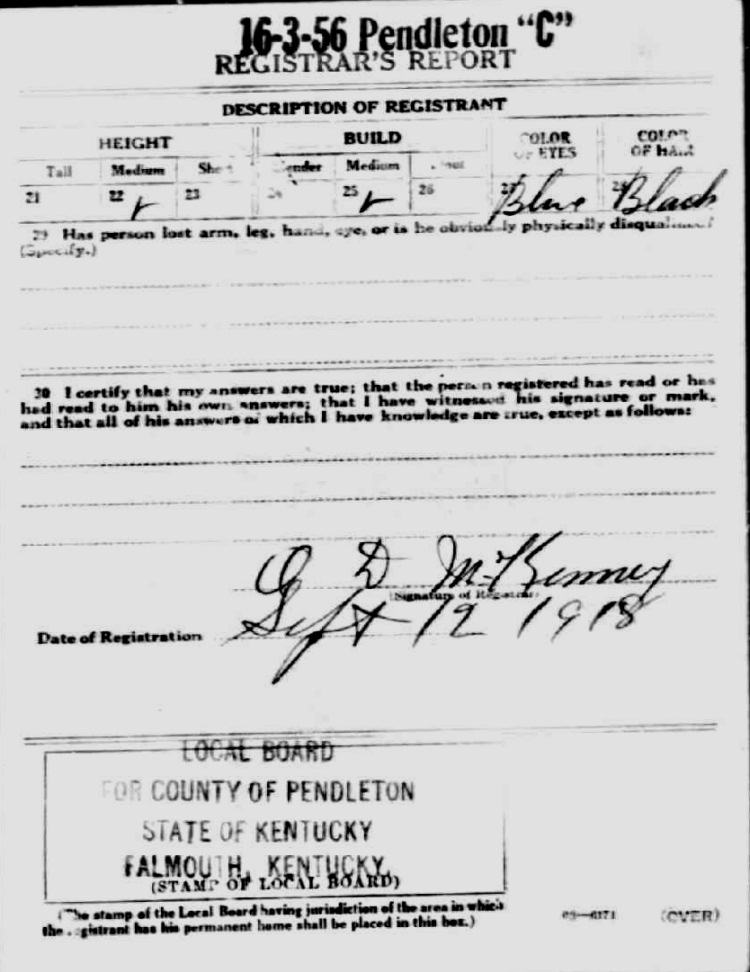 16-3-56 Pendleton "C"
REGISTRAR'S REPORT
DESCRIPTION OF REGISTRANT
HEIGHT BUILD COLOR OF EYES COLOR OF HAIR
Tall Medium Short Slender Medium Stout
21 22 ✓ 23 24 25 ✓ 26 27 Blue 28 Black
29 Has person lost arm, leg, hand, eye, or is he obviously physically disqualified?
(Specify.)
30 I certify that my answers are true; that the person registered has read or has
had read to him his own answers; that I have witnessed his signature or mark,
and that all of his answers of which I have knowledge are true, except as follows:
D McKenney
(Signature of Registrar)
Date of Registration Sept 12 1918
LOCAL BOARD
FOR COUNTY OF PENDLETON
STATE OF KENTUCKY
FALMOUTH, KENTUCKY.
(STAMP OF LOCAL BOARD)
(The stamp of the Local Board having jurisdiction of the area in which
the registrant has his permanent home shall be placed in this box.)
03—6171 (OVER)